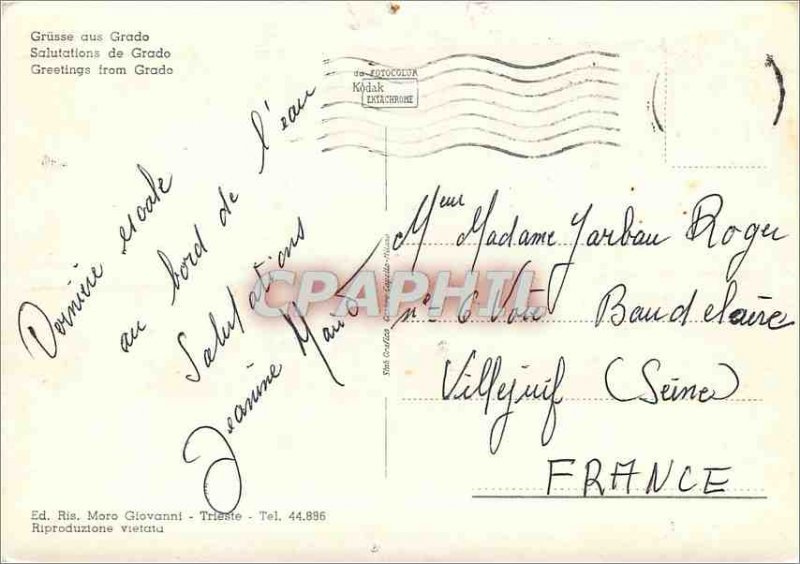 Grüsse aus Grado
Salutations de Grado
Greetings from Grado
da FOTOCOLOR
Kodak
EKTACHROME
Dernière escale
au bord de l'eau
Salutations
Jeanine
Meur Madame Jarbau Roger
n° 6 Baudelaire
Villejuif (Seine)
FRANCE
CPAPHIL
Stab Grafico Cesare Capello - Milano
Ed. Ris. Moro Giovanni - Trieste - Tel. 44.886
Riproduzione vietata